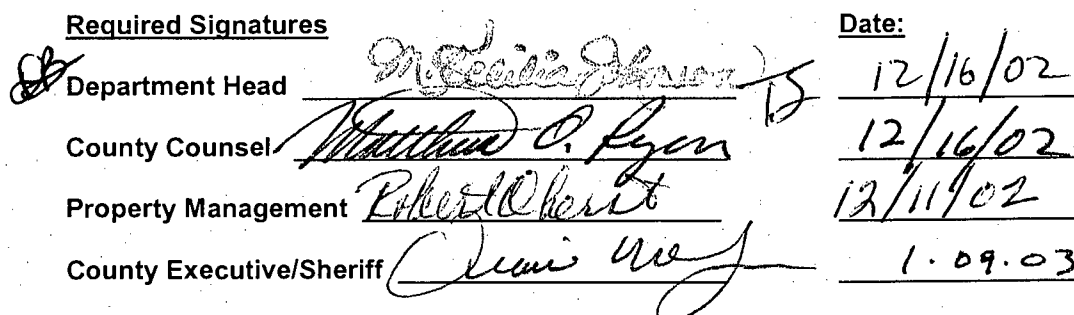 Required Signatures Date:
Department Head M. Cecilia Johnson 12/16/02
County Counsel Matthew O. Ryan 12/16/02
Property Management Robert Oberst 12/11/02
County Executive/Sheriff 1.09.03